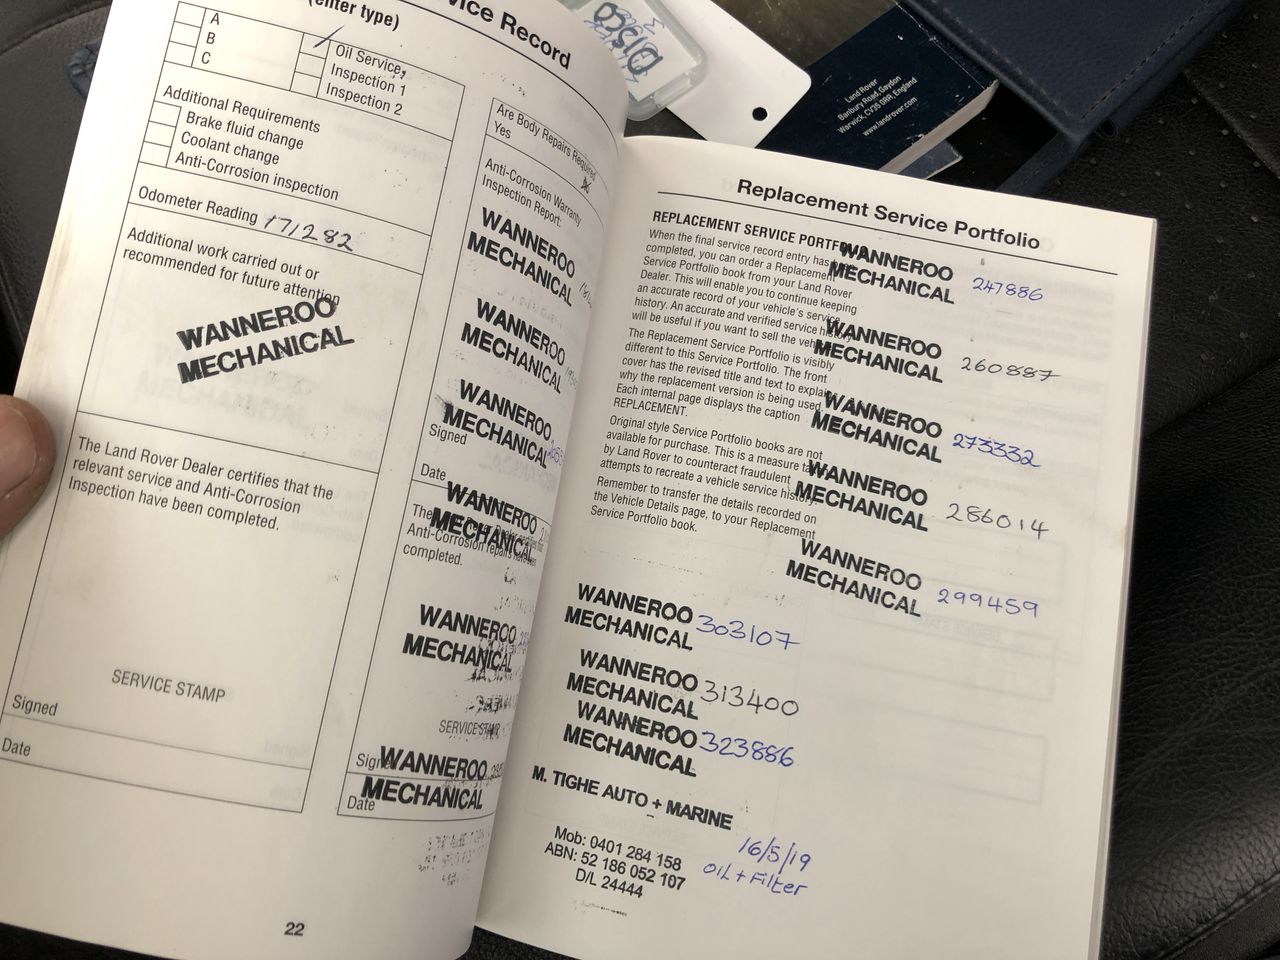 vice Record
(enter type)
A
B
C
Oil Service,
Inspection 1
Inspection 2
Additional Requirements
Brake fluid change
Coolant change
Anti-Corrosion inspection
Odometer Reading 171282
Additional work carried out or
recommended for future attention
WANNEROO
MECHANICAL
The Land Rover Dealer certifies that the
relevant service and Anti-Corrosion
Inspection have been completed.
SERVICE STAMP
Signed
Date
22
Are Body Repairs Required
Yes
Anti-Corrosion Warranty
Inspection Report:
WANNEROO
MECHANICAL
WANNEROO
MECHANICAL
WANNEROO
MECHANICAL
Signed
Date
WANNEROO
MECHANICAL
Anti-Corrosion repairs have been
completed.
WANNEROO
MECHANICAL
SERVICE STAMP
Signed
WANNEROO
MECHANICAL
Date
DISCO
Land Rover
Banbury Road, Gaydon
Warwick, CV35 0RR, England
www.landrover.com
Replacement Service Portfolio
REPLACEMENT SERVICE PORTFOLIO
When the final service record entry has
completed, you can order a Replacement
Service Portfolio book from your Land Rover
Dealer. This will enable you to continue keeping
an accurate record of your vehicle's service
history. An accurate and verified service history
will be useful if you want to sell the vehicle
The Replacement Service Portfolio is visibly
different to this Service Portfolio. The front
cover has the revised title and text to explain
why the replacement version is being used
Each internal page displays the caption
REPLACEMENT.
Original style Service Portfolio books are not
available for purchase. This is a measure
by Land Rover to counteract fraudulent
attempts to recreate a vehicle service history
Remember to transfer the details recorded on
the Vehicle Details page, to your Replacement
Service Portfolio book.
WANNEROO
MECHANICAL 247886
WANNEROO
MECHANICAL 260887
WANNEROO
MECHANICAL 273332
WANNEROO
MECHANICAL 286014
WANNEROO
MECHANICAL 299459
WANNEROO
MECHANICAL 303107
WANNEROO
MECHANICAL 313400
WANNEROO
MECHANICAL 323886
M. TIGHE AUTO + MARINE
Mob: 0401 284 158
ABN: 52 186 052 107
D/L 24444
16/5/19
OIL + Filter